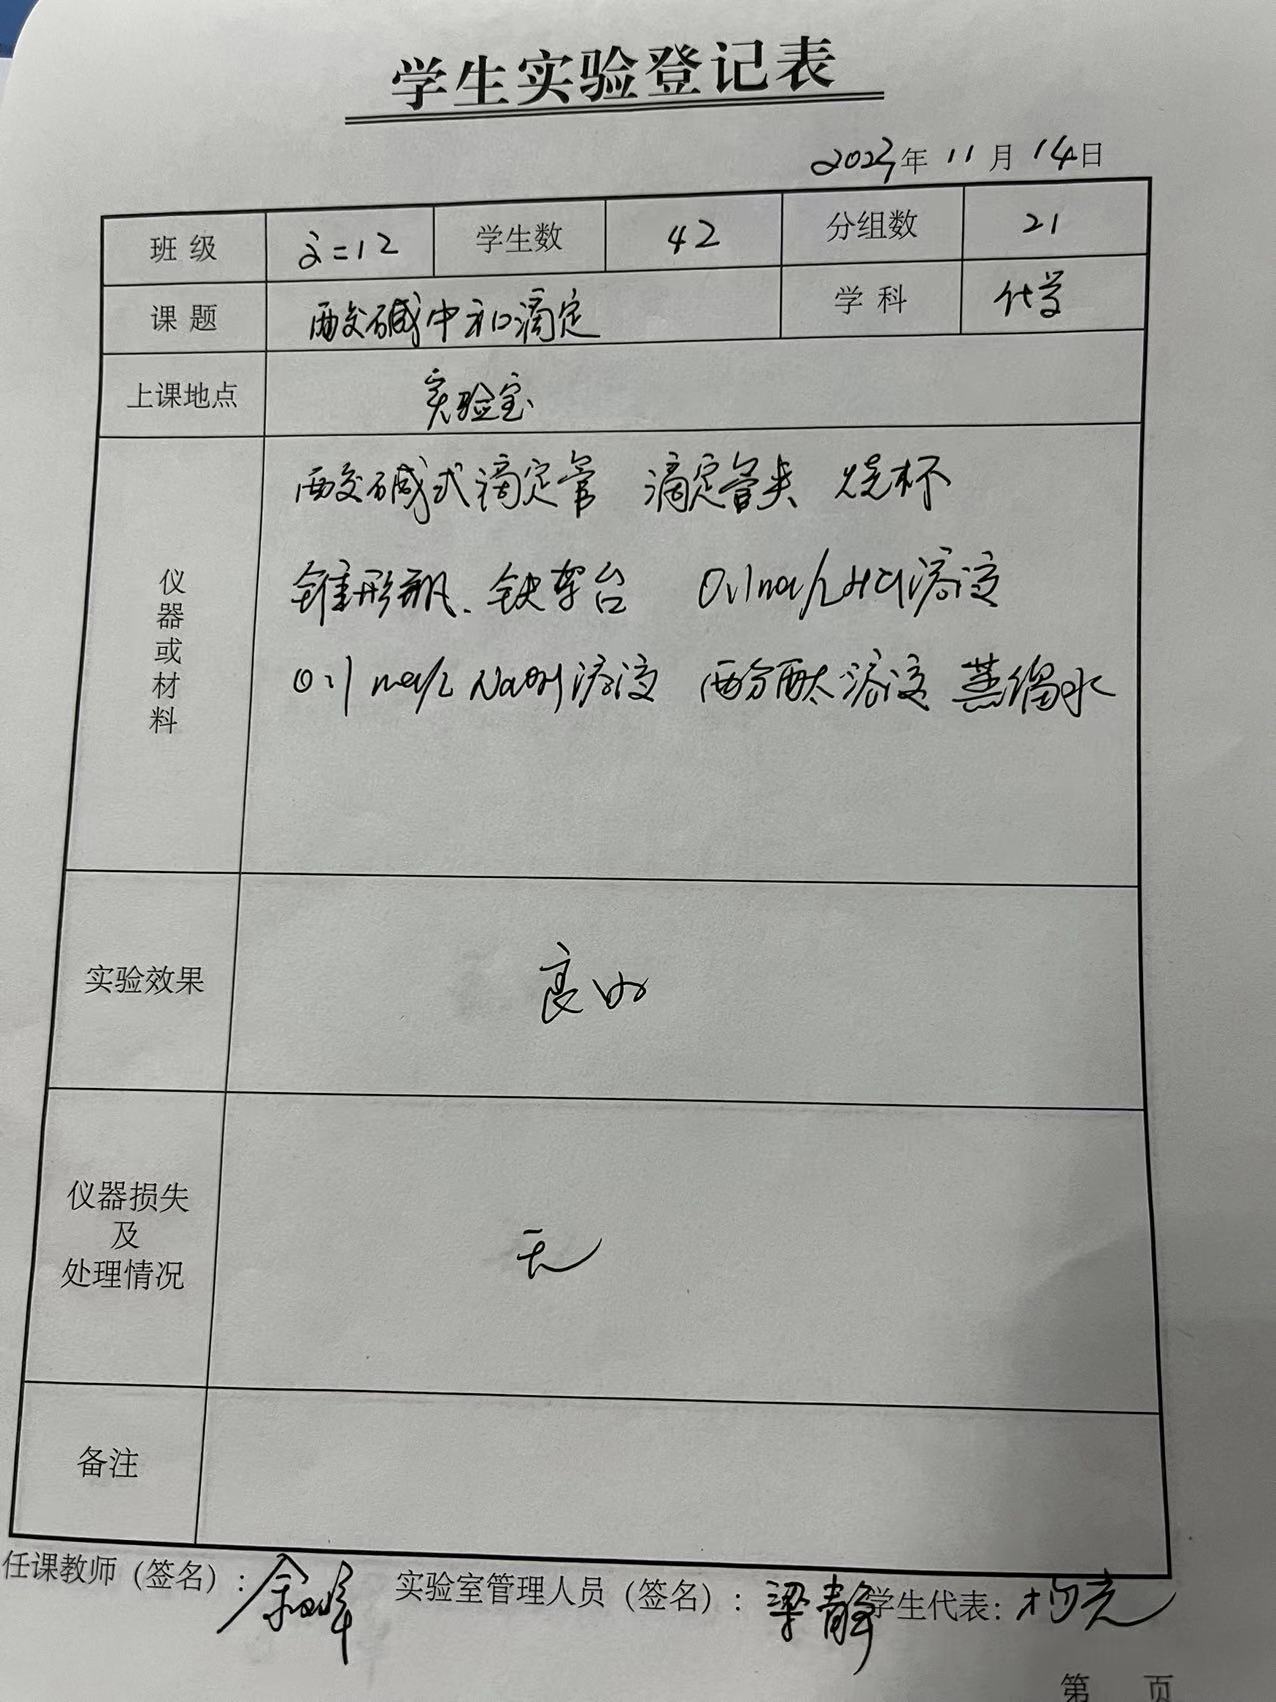 学生实验登记表
2023年11月14日
班级 高二12 学生数 42 分组数 21
课题 酸碱中和滴定 学科 化学
上课地点 实验室
仪器或材料
酸碱式滴定管 滴定管夹 烧杯
锥形瓶、铁架台 0.1mol/L HCl溶液
0.1mol/L NaOH溶液 酚酞溶液 蒸馏水
实验效果 良好
仪器损失
及
处理情况
无
备注
任课教师（签名）: 实验室管理人员（签名）: 梁静 学生代表: 杨亮
第 页